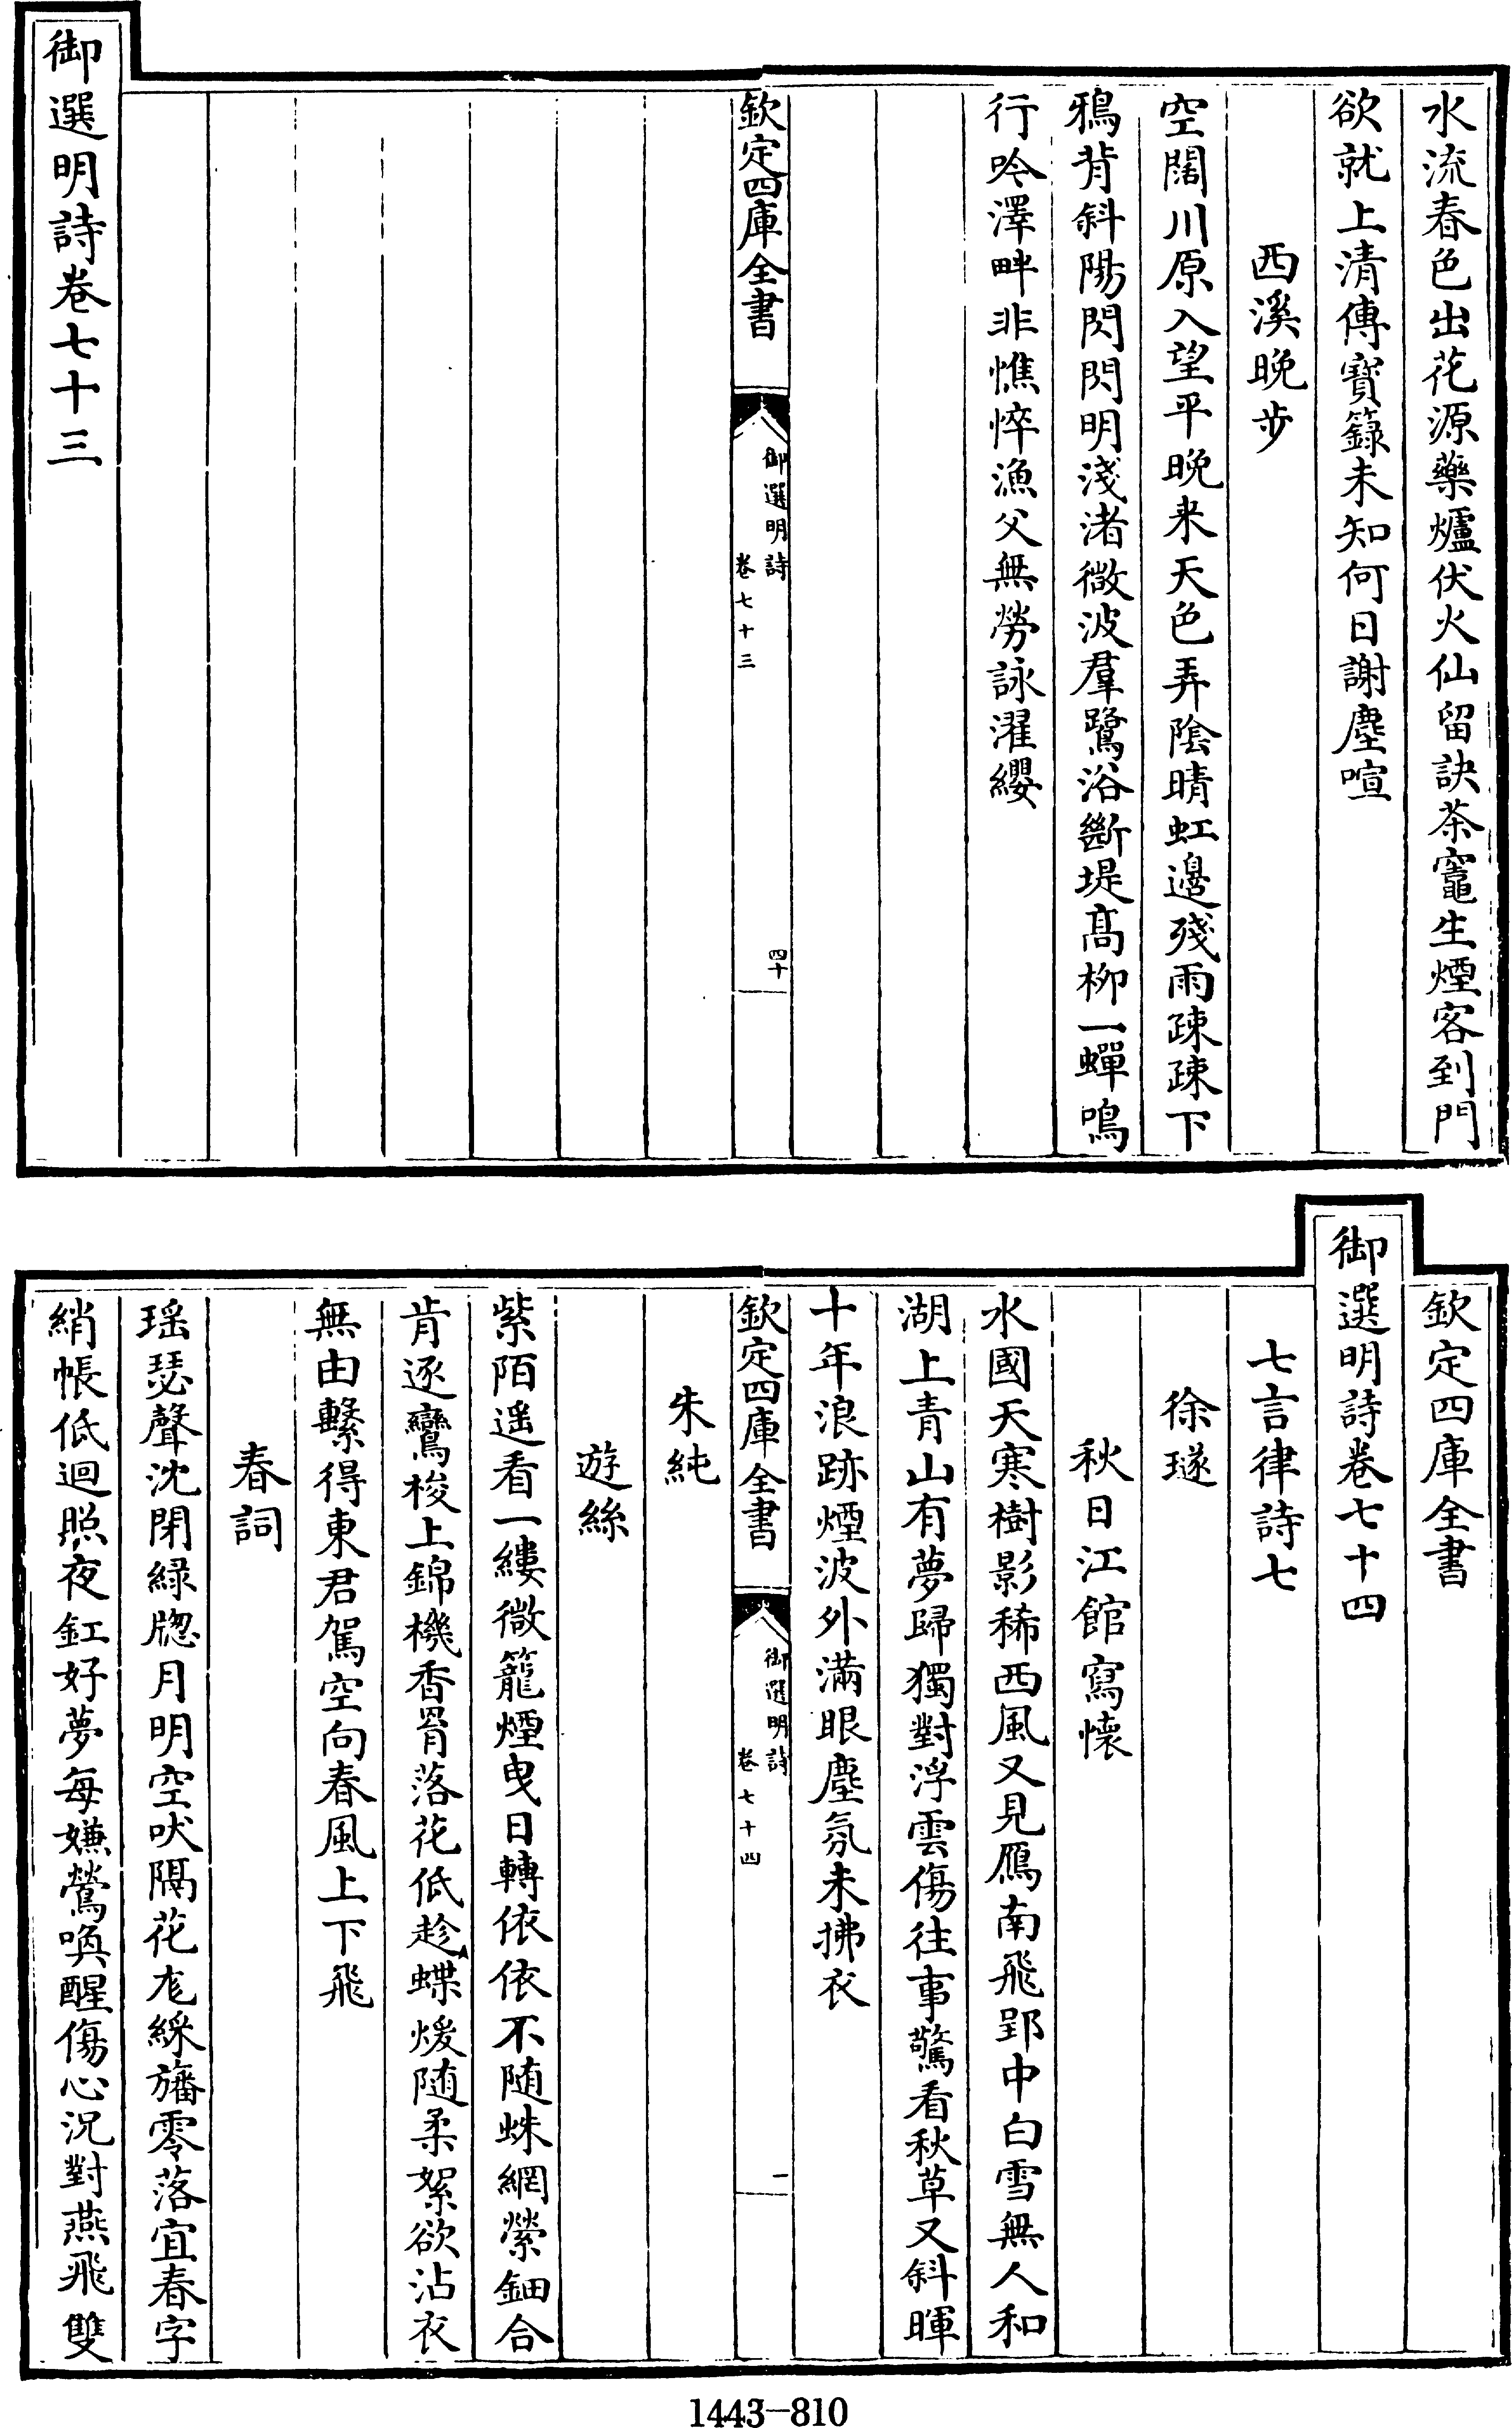 水流春色出花源藥爐伏火仙留訣茶竈生煙客到門
欲就上清傳寶籙未知何日謝塵喧
西溪晚步
空闊川原入望平晚来天色弄陰晴虹邉殘雨疎疎下
鴉背斜陽閃閃明淺渚微波羣鷺浴斷堤髙柳一蟬鳴
行吟澤畔非憔悴漁父無勞詠濯纓
欽定四庫全書
御選明詩
卷七十三
四十
御選明詩卷七十三
欽定四庫全書
御選明詩卷七十四
七言律詩七
徐璲
秋日江館寫懷
水國天寒樹影稀西風又見鴈南飛郢中白雪無人和
湖上青山有夢歸獨對浮雲傷往事驚看秋草又斜暉
十年浪跡煙波外滿眼塵氛未拂衣
欽定四庫全書
御選明詩
卷七十四
一
朱純
遊絲
紫陌遥看一縷微籠煙曳日轉依依不随蛛網縈鈿合
肯逐鸞梭上錦機香罥落花低趁蝶煖随柔絮欲沾衣
無由繫得東君駕空向春風上下飛
春詞
瑶瑟聲沈閉緑牎月明空吠隔花尨綵旛零落宜春字
綃帳低迴照夜釭好夢每嫌鶯喚醒傷心況對燕飛雙
1443-810